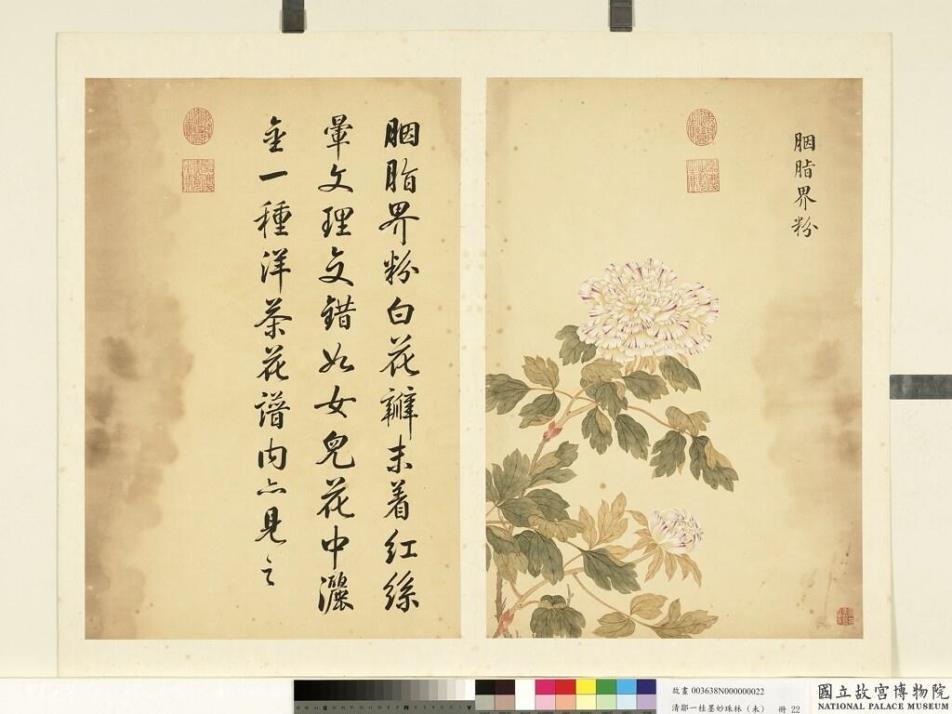 胭脂界粉
胭脂界粉白花瓣末着紅絲
暈文理交錯如女兒花中灑
金一種洋茶花譜内亦見之
故畫 003638N000000022
清鄒一桂墨妙珠林（未） 冊 22
國立故宮博物院
NATIONAL PALACE MUSEUM